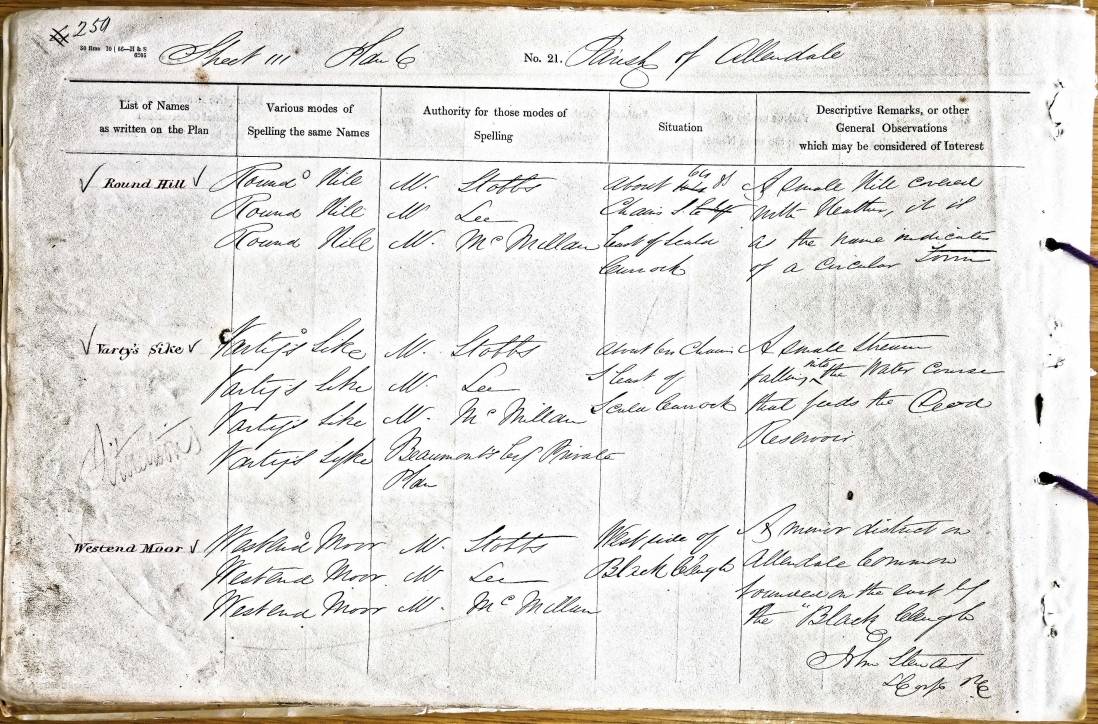 250
Sheet 111 Plan 6 No. 21. Parish of Allendale
List of Names
as written on the Plan
Various modes of
Spelling the same Names
Authority for those modes of
Spelling
Situation
Descriptive Remarks, or other
General Observations
which may be considered of Interest
Round Hill
Round Hill
Round Hill
Round Hill
W. Stobbs
W. Lee
W. McMillan
About
Chains S.
East of Scala
Currock
A small Hill covered
with Heather, it is
as the name indicates
of a circular Form
Varty's Sike
Varty's Sike
Varty's Sike
Varty's Sike
Varty's Syke
W. Stobbs
W. Lee
W. McMillan
Beaumont's Private
Plan
About Chains
S East of
Scala Currock
A small Stream
falling into the Water Course
that feeds the Dodd
Reservoir
Situation
Westend Moor
Westend Moor
Westend Moor
Westend Moor
W. Stobbs
W. Lee
W. McMillan
West side of
Black Cleugh
A minor district on
Allendale Common
bounded on the east by
the "Black Cleugh
John Stewart
L Corpl RE